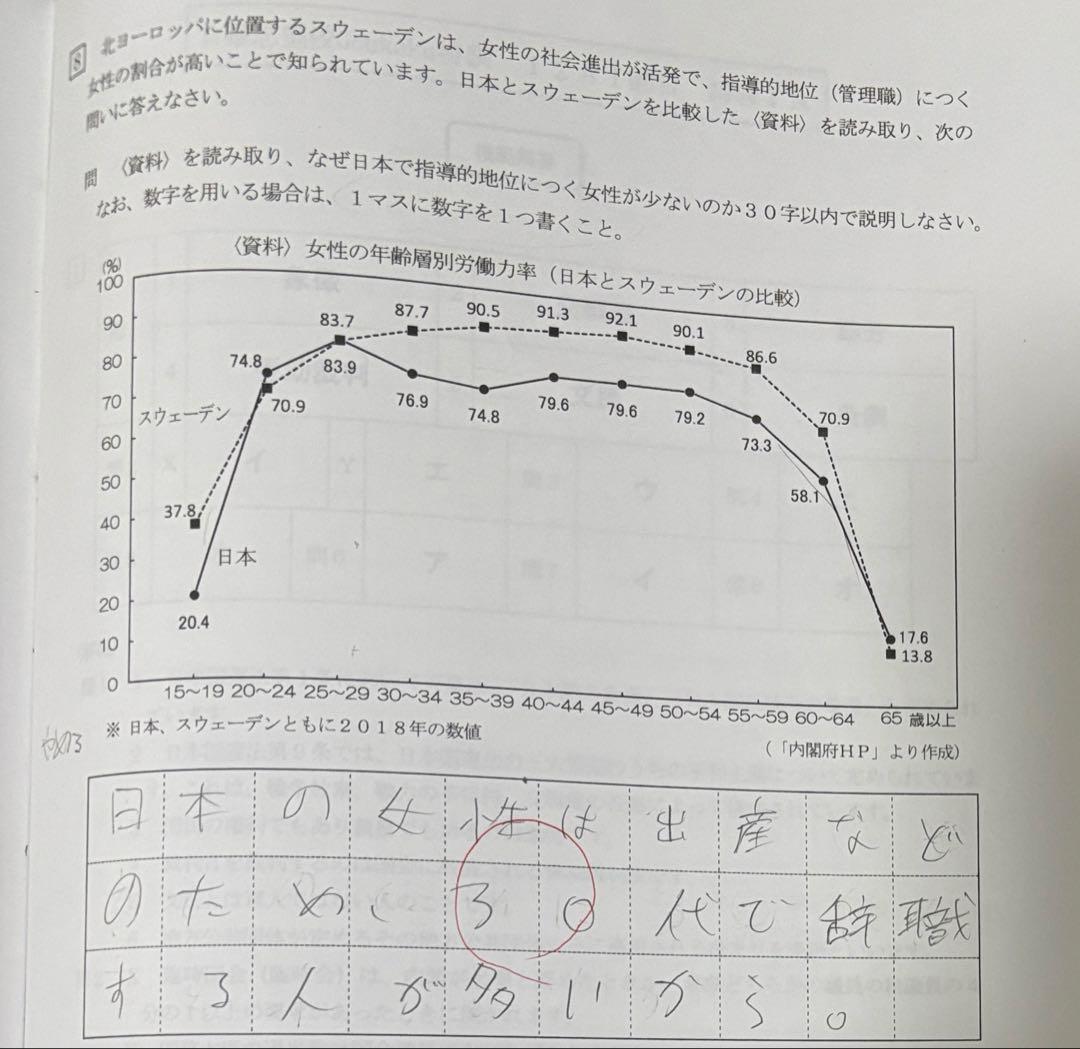 8 北ヨーロッパに位置するスウェーデンは、女性の社会進出が活発で、指導的地位（管理職）につく
女性の割合が高いことで知られています。日本とスウェーデンを比較した〈資料〉を読み取り、次の
問いに答えなさい。
問 〈資料〉を読み取り、なぜ日本で指導的地位につく女性が少ないのか３０字以内で説明しなさい。
なお、数字を用いる場合は、１マスに数字を１つ書くこと。
〈資料〉女性の年齢層別労働力率（日本とスウェーデンの比較）
(%)
100
90
80
70
60
50
40
30
20
10
0
83.7 87.7 90.5 91.3 92.1 90.1 86.6 70.9
74.8 83.9 76.9 74.8 79.6 79.6 79.2 73.3 58.1
スウェーデン 70.9
37.8
日本
20.4
17.6
13.8
15～19 20～24 25～29 30～34 35～39 40～44 45～49 50～54 55～59 60～64 65 歳以上
※ 日本、スウェーデンともに２０１８年の数値
（「内閣府ＨＰ」より作成）
日本の女性は出産など
のため、30代で辞職
する人が多いから。